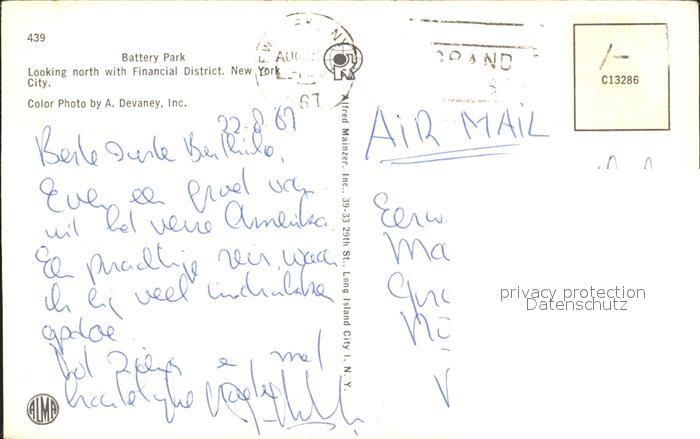 439
Battery Park
Looking north with Financial District. New York City.
Color Photo by A. Devaney, Inc.
NEW YORK, N.Y.
AUG
67
GRAND
1/-
C13286
Alfred Mainzer, Inc., 39-33 29th St., Long Island City 1, N. Y.
AIR MAIL
22.8.67
Beste Zuster Berthilo,
Even een groet van
uit het verre Amerika.
Een prachtige reis, waar
ik erg veel indrukken
opdoe.
Tot ziens en met
hartelijke
Eerw.
Ma
privacy protection
Datenschutz
ALMA